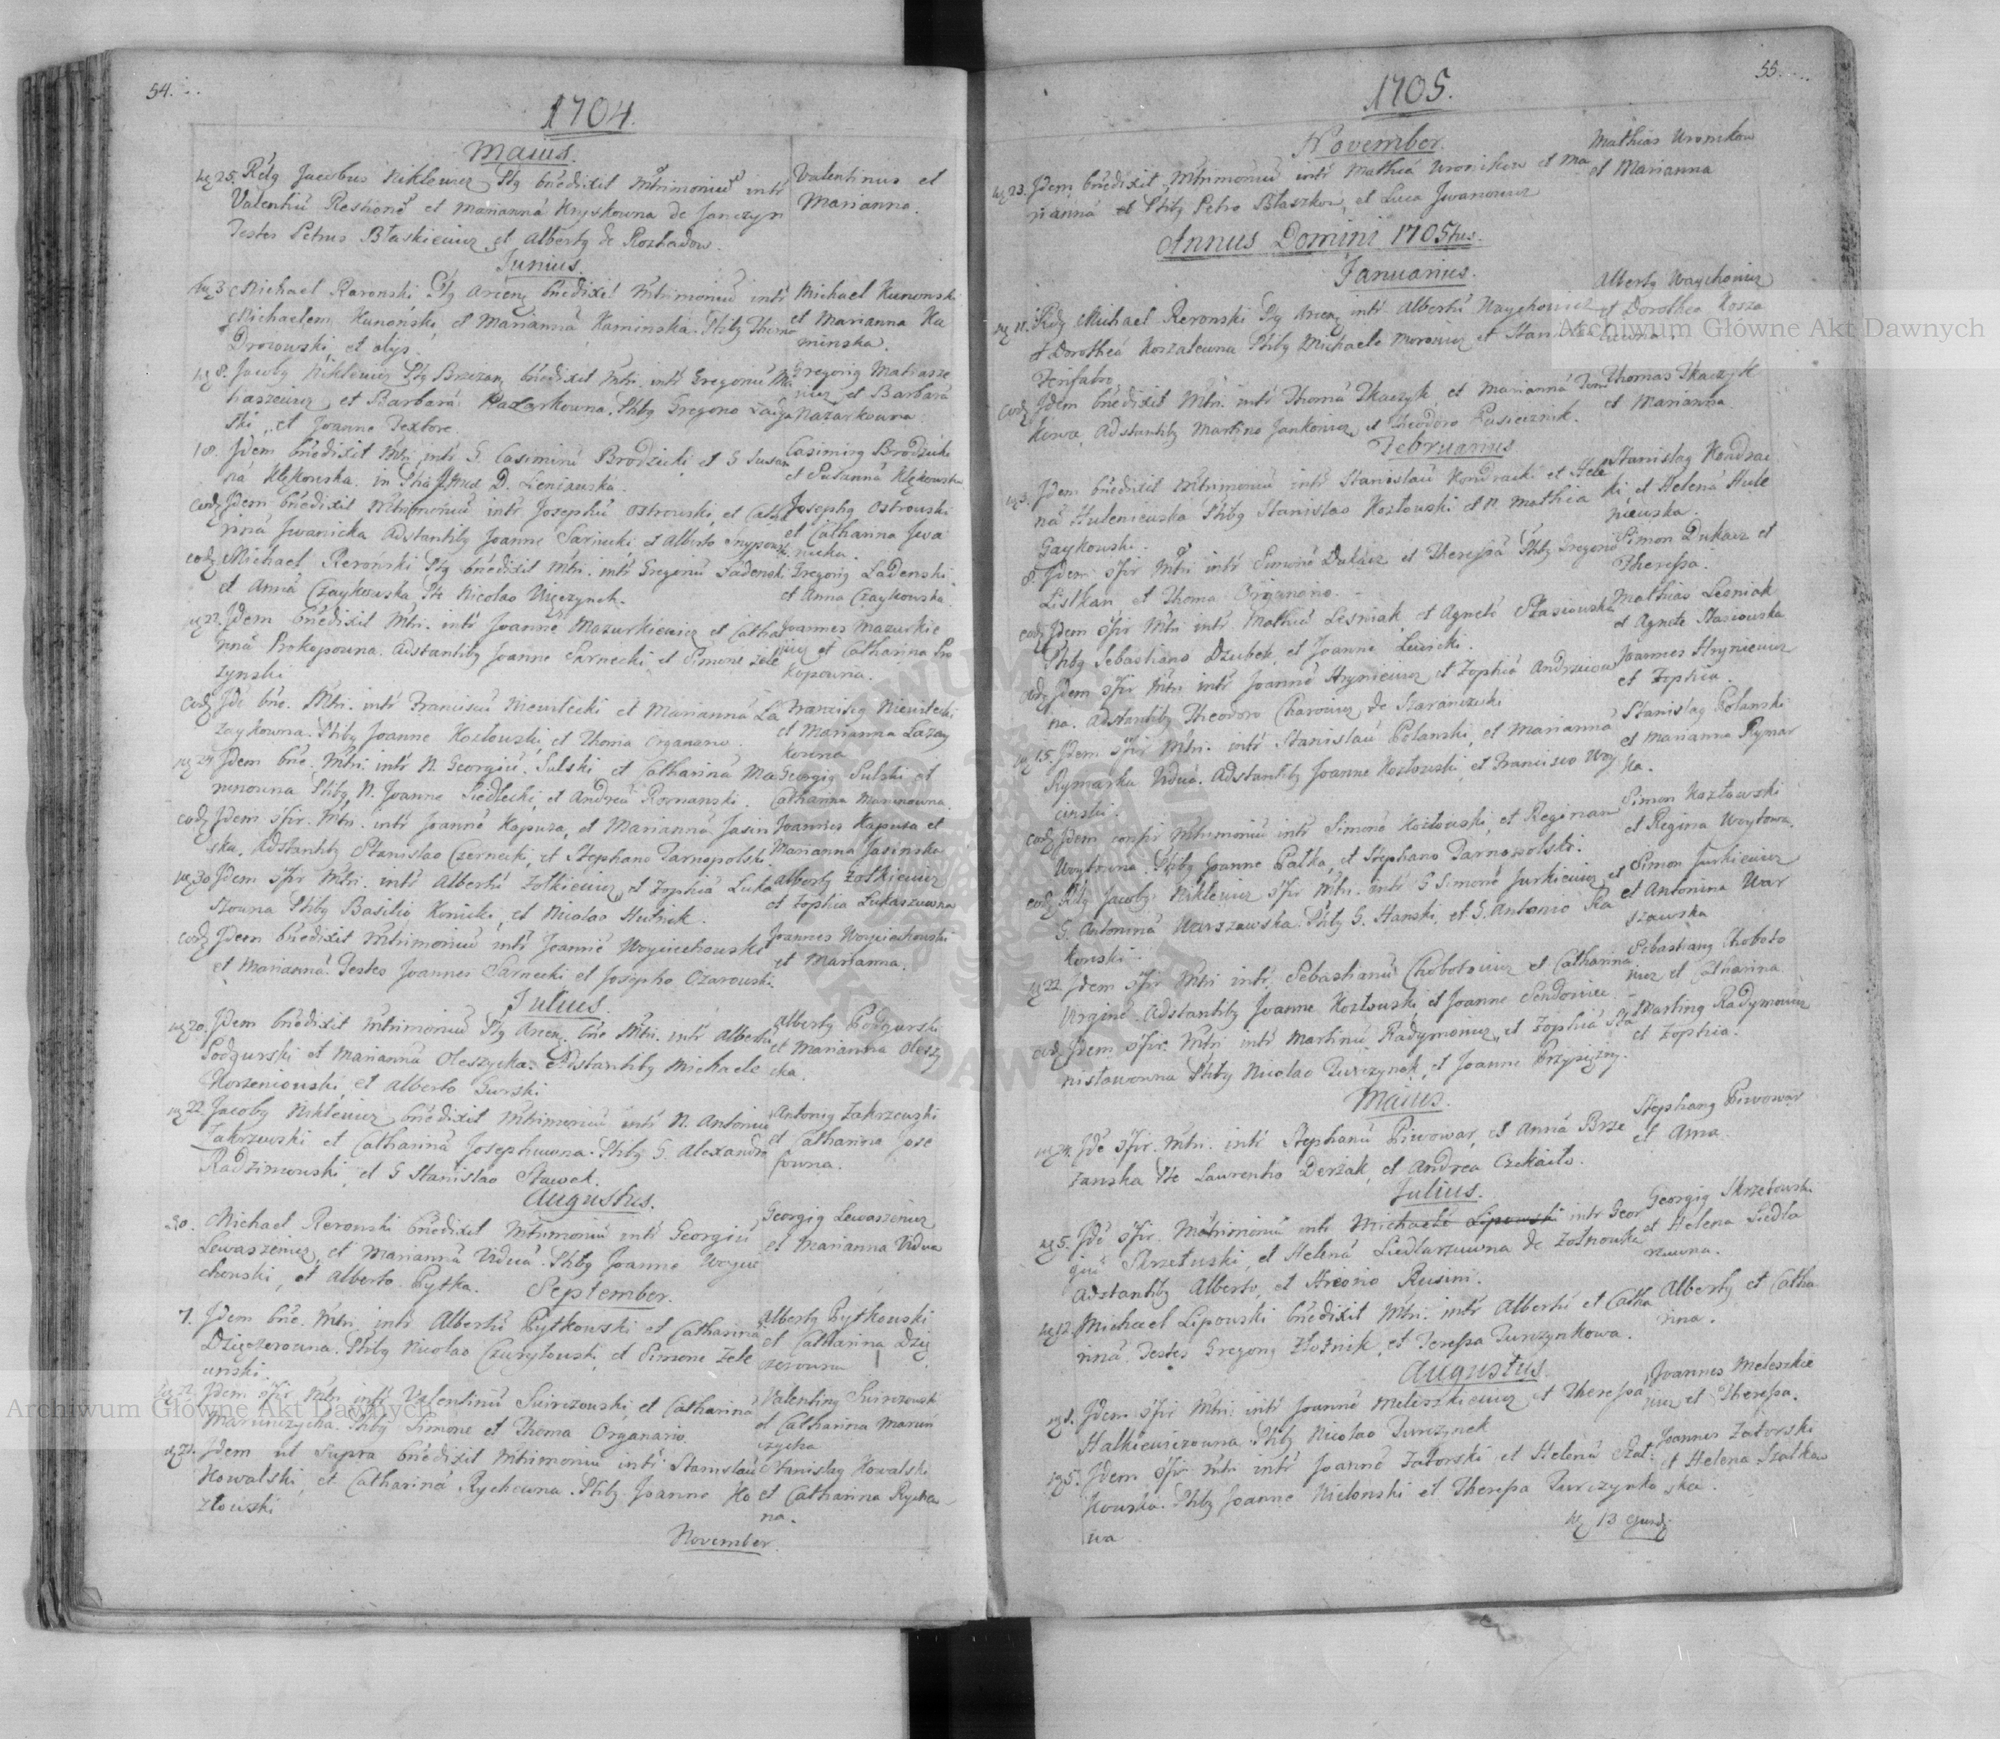 54.
1704.
Maius.
25. Rdg Jacobus Niklewicz Ptg bñedixit Mtrimoniũ intr
Valentiũ et Marianná Kryskowna de Janczyn
Testes Petrus Błaskiewicz et Alberty de Rozhadow.
Valentinus et
Marianna.
Junius.
3 Michael Reronski Ptg bñedixit Mtrimoniũ intr
Michaelem Kunonski, et Marianná Kaminska. Ptiby Thoma
Drozowski et alijs.
Michael Kunonski
et Marianna Ka
minska.
8. Jacoby Niklewicz Ptg Brzezan bñedixit Mtri. intr Gregoriũ Ma
tiaszewicz, et Barbará Nazarkowna. Ptiby Gregorio
ski, et Joanne Textore.
Gregorig Matiasze
wicz et Barbará
Nazarkowna.
18. Jdem bñedixit Mtri intr G. Casimirũ Brodzicki et G Susan
ná Klękowska. in D.
Casimirg Brodzicki
et Susanná Klękowska
eodg Jdem bñedixit Mtrimoniũ intr Josephũ Ostrowski, et Catha
rinná Jwanicka Adstantiby Joanne Sarnecki et Alberto
Josephg Ostrowski
et Catharina Jwa
nicka.
eodg Michael Reronski Ptg bñedixit Mtri. intr Gregoriũ Ladenski
et Anná Czaykowska Pte Nicolao
Gregorig Ladenski
et Anna Czaykowska
22. Jdem bñedixit Mtri. intr Joanne Mazurkiewicz et Catha
rinná Prokopowna. Adstantiby Joanne Sarnecki et Simone Zele
zynski
Joannes Mazurkie
wicz et Catharina Pro
kopowna.
eodg Jdē bñe. Mtri. intr Franciscũ Niewlecki et Marianná La
zaykowna. Ptiby Joanne Kozłowski, et Thoma Organario.
Franciscg Niewlecki
et Marianna Lazay
kowna
24. Jdem bñe. Mtri. intr N. Georgiũ Sulski et Catharina Ma
rinowna Ptiby N. Joanne Siedlecki, et Andreá Romanski.
Georgig Sulski et
Catharina Marinowna.
eodg Jdem sfir. Mtri. intr Joanné Kapusa, et Marianná Jasin
ska. Adstantiby Stanislao Czernecki, et Stephano Tarnopolski.
Joannes Kapusa et
Marianna Jasinska
30. Jdem sfir Mtri. intr Albertũ Zołkiewicz, et Zophiá Luka
szowna Ptiby Basilio Konicki et Nicolao Hutnik.
Alberty Zołkiewicz
et Zophia Lukaszowna
eodg Jdem bñedixit Mtrimoniũ intr Joanné Woyciechowski
et Marianná. Testes Joannes Sarnecki et Josepho Ozarowski.
Joannes Woyciechowski
et Marianna.
Julius.
20. Jdem bñedixit Mtrimoniũ Ptg bñe Mtri. intr Albertũ
Podgurski et Marianná Oleszycka. Adstantiby Michaele
Korzeniowski, et Alberto Gurski
Alberty Podgurski
et Marianna Oleszy
cka.
22. Jacoby Niklewicz bñedixit Mtrimoniũ intr N. Antoniũ
Zakrzewski et Catharinná Josephowna. Ptiby G. Alexandro
Radzimowski, et G Stanislao Sławek.
Antonig Zakrzewski
et Catharina Jose
fowna.
Augustus.
30. Michael Reronski bñedixit Mtrimoniũ intr Georgiũ
Lewaszewicz, et Marianná Viduá. Ptiby Joanne Woycie
chowski, et Alberto Pytka.
Georgig Lewaszewicz
et Marianna Vidua
September.
7. Jdem bñe. Mtri. intr Albertũ Pytkowski et Catharina
Dzięzerowna. Ptiby Nicolao Czuryłowski, et Simone Zele
winski.
Alberty Pytkowski
et Catharina Dzię
zerowna
Jdem sfir Mtri intr Valentinũ Swirczowski et Catharina
Marinczycha. Ptiby Simone et Thoma Organario.
Valenting Swirczowski
et Catharina Marin
czycha
21. Jdem ut Supra bñedixit Mtrimoniũ intr Stanislaũ
Kowalski, et Catharinná Rychowna. Ptiby Joanne Ko
złowski
Stanislag Kowalski
et Catharina Rycho
na.
November.
55.
1705.
November.
23. Jdem bñedixit Mtrimoniũ intr Mathiá Wronikow et Ma
rianná et Ptiby Petro Błaszkow, et Luca Jwanowicz
Mathias Wronikow
et Marianna
Annus Domini 1705tus.
Januarius.
11. Rdg Michael Reronski Ptg intr Albertũ Waychowicz
et Dorotheá Kozalewna Ptiby Michaele Morawicz et Stanislao
Ferifabro.
Alberty Waychowicz
et Dorothea Koza
lewna.
eodg Jdem bñedixit Mtri. intr Thomá Tkaczyk, et Marianná Tom
kowa, Adstantiby Martino Jankowicz, et Theodoro Pasiecznik.
Thomas Tkaczyk
et Marianna
Februarius
3. Jdem bñedixit Mtrimoniũ intr Stanislaũ Kondracki et Hele
ná Huleniewska Ptiby Stanislao Kozłowski et N. Mathia
Gaykowski.
Stanislag Kondrac
ki, et Helená Hule
niewska.
8. Jdem sfir Mtri intr Simoné Dukacz et Theressá Ptiby Gregorio
Listkan et Thoma Organario.
Simon Dukacz et
Theressa.
eodg Jdem sfir Mtri intr Mathiũ Lesniak, et Agneté Stasiowska
Ptiby Sebastiano Dzubek, et Joanne Lewicki.
Mathias Lesniak
et Agnete Stasiowska
eodg Jdem sfir Mtri intr Joanné Hryniewicz et Zophiá Andrzeiow
na. Adstantiby Theodoro Charowicz de Szaranczuki
Joannes Hryniewicz
et Zophia.
15. Jdem sfir Mtri. intr Stanislaũ Polanski, et Marianná
Rymarka Viduá. Adstantiby Joanne Kozłowski, et Francisco Woy
cicski.
Stanislag Polanski
et Marianna Rymar
ka.
eodg Jdem confir Mtrimoniũ intr Simoné Kozłowski, et Reginam
Woytowna. Ptiby Joanne Pałka, et Stephano Tarnopolski.
Simon Kozłowski
et Regina Woytowa.
eodg Rdg Jacoby Niklewicz sfir Mtri. intr G Simoné Jurkiewicz et
G. Antoniná Warszawska. Ptiby G. Stanski, et G. Antonio Ra
konski.
Simon Jurkiewicz
et Antonina War
szawska
22. Jdem sfir Mtri intr. Sebastianũ Chobotowicz et Catharina
Virgine. Adstantiby Joanne Kozłowski, et Joanne Sendowicz.
Sebastiang Choboto
wicz et Catharina
eodg Jdem sfir. Mtri intr Martinũ Radymowicz, et Zophiá Sta
nisławowna Ptiby Nicolao Turczynek, et Joanne Przysiężny.
Marting Radymowicz
et Zophia.
Maius.
24. Jdē sfir. Mtri. intr Stephanũ Piwowar, et Anná Brze
zanska Pte Laurentio Derzak, et Andrea Czekaito.
Stephang Piwowar
et Anna
Julius.
5. Jdē sfir. Matrimoniũ intr Michaelé Lipowski intr Geor
giũ Skrzetuski, et Helená Siedlarzowna de Zołnowka
Adstantiby Alberto, et Antonio Rusini.
Georgig Skrzetowski
et Helena Siedla
rzowna.
12. Michael Lipowski bñedixit Mtri. intr Albertũ et Catha
rinná. Testes Gregorig Złotnik, et Teressa Turczynkowa.
Alberty et Catha
rina.
Augustus.
1. Jdem sfir Mtri. intr Joanné Meleszkiewicz et Theressa
Halkiewiczowna. Ptiby Nicolao Turczynek
Joannes Meleszkie
wicz et Theressa.
15. Jdem sfir Mtri intr Joanné Zatorski et Helená Szat
kowska. Ptiby Joanne Nielonski et Theressa Turczynko
wa
Joannes Zatorski
et Helena Szatkow
ska.
13
Archiwum Główne Akt Dawnych
Archiwum Główne Akt Dawnych